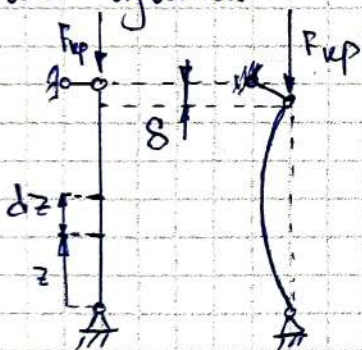 Fкр
Fкр
δ
dz
z